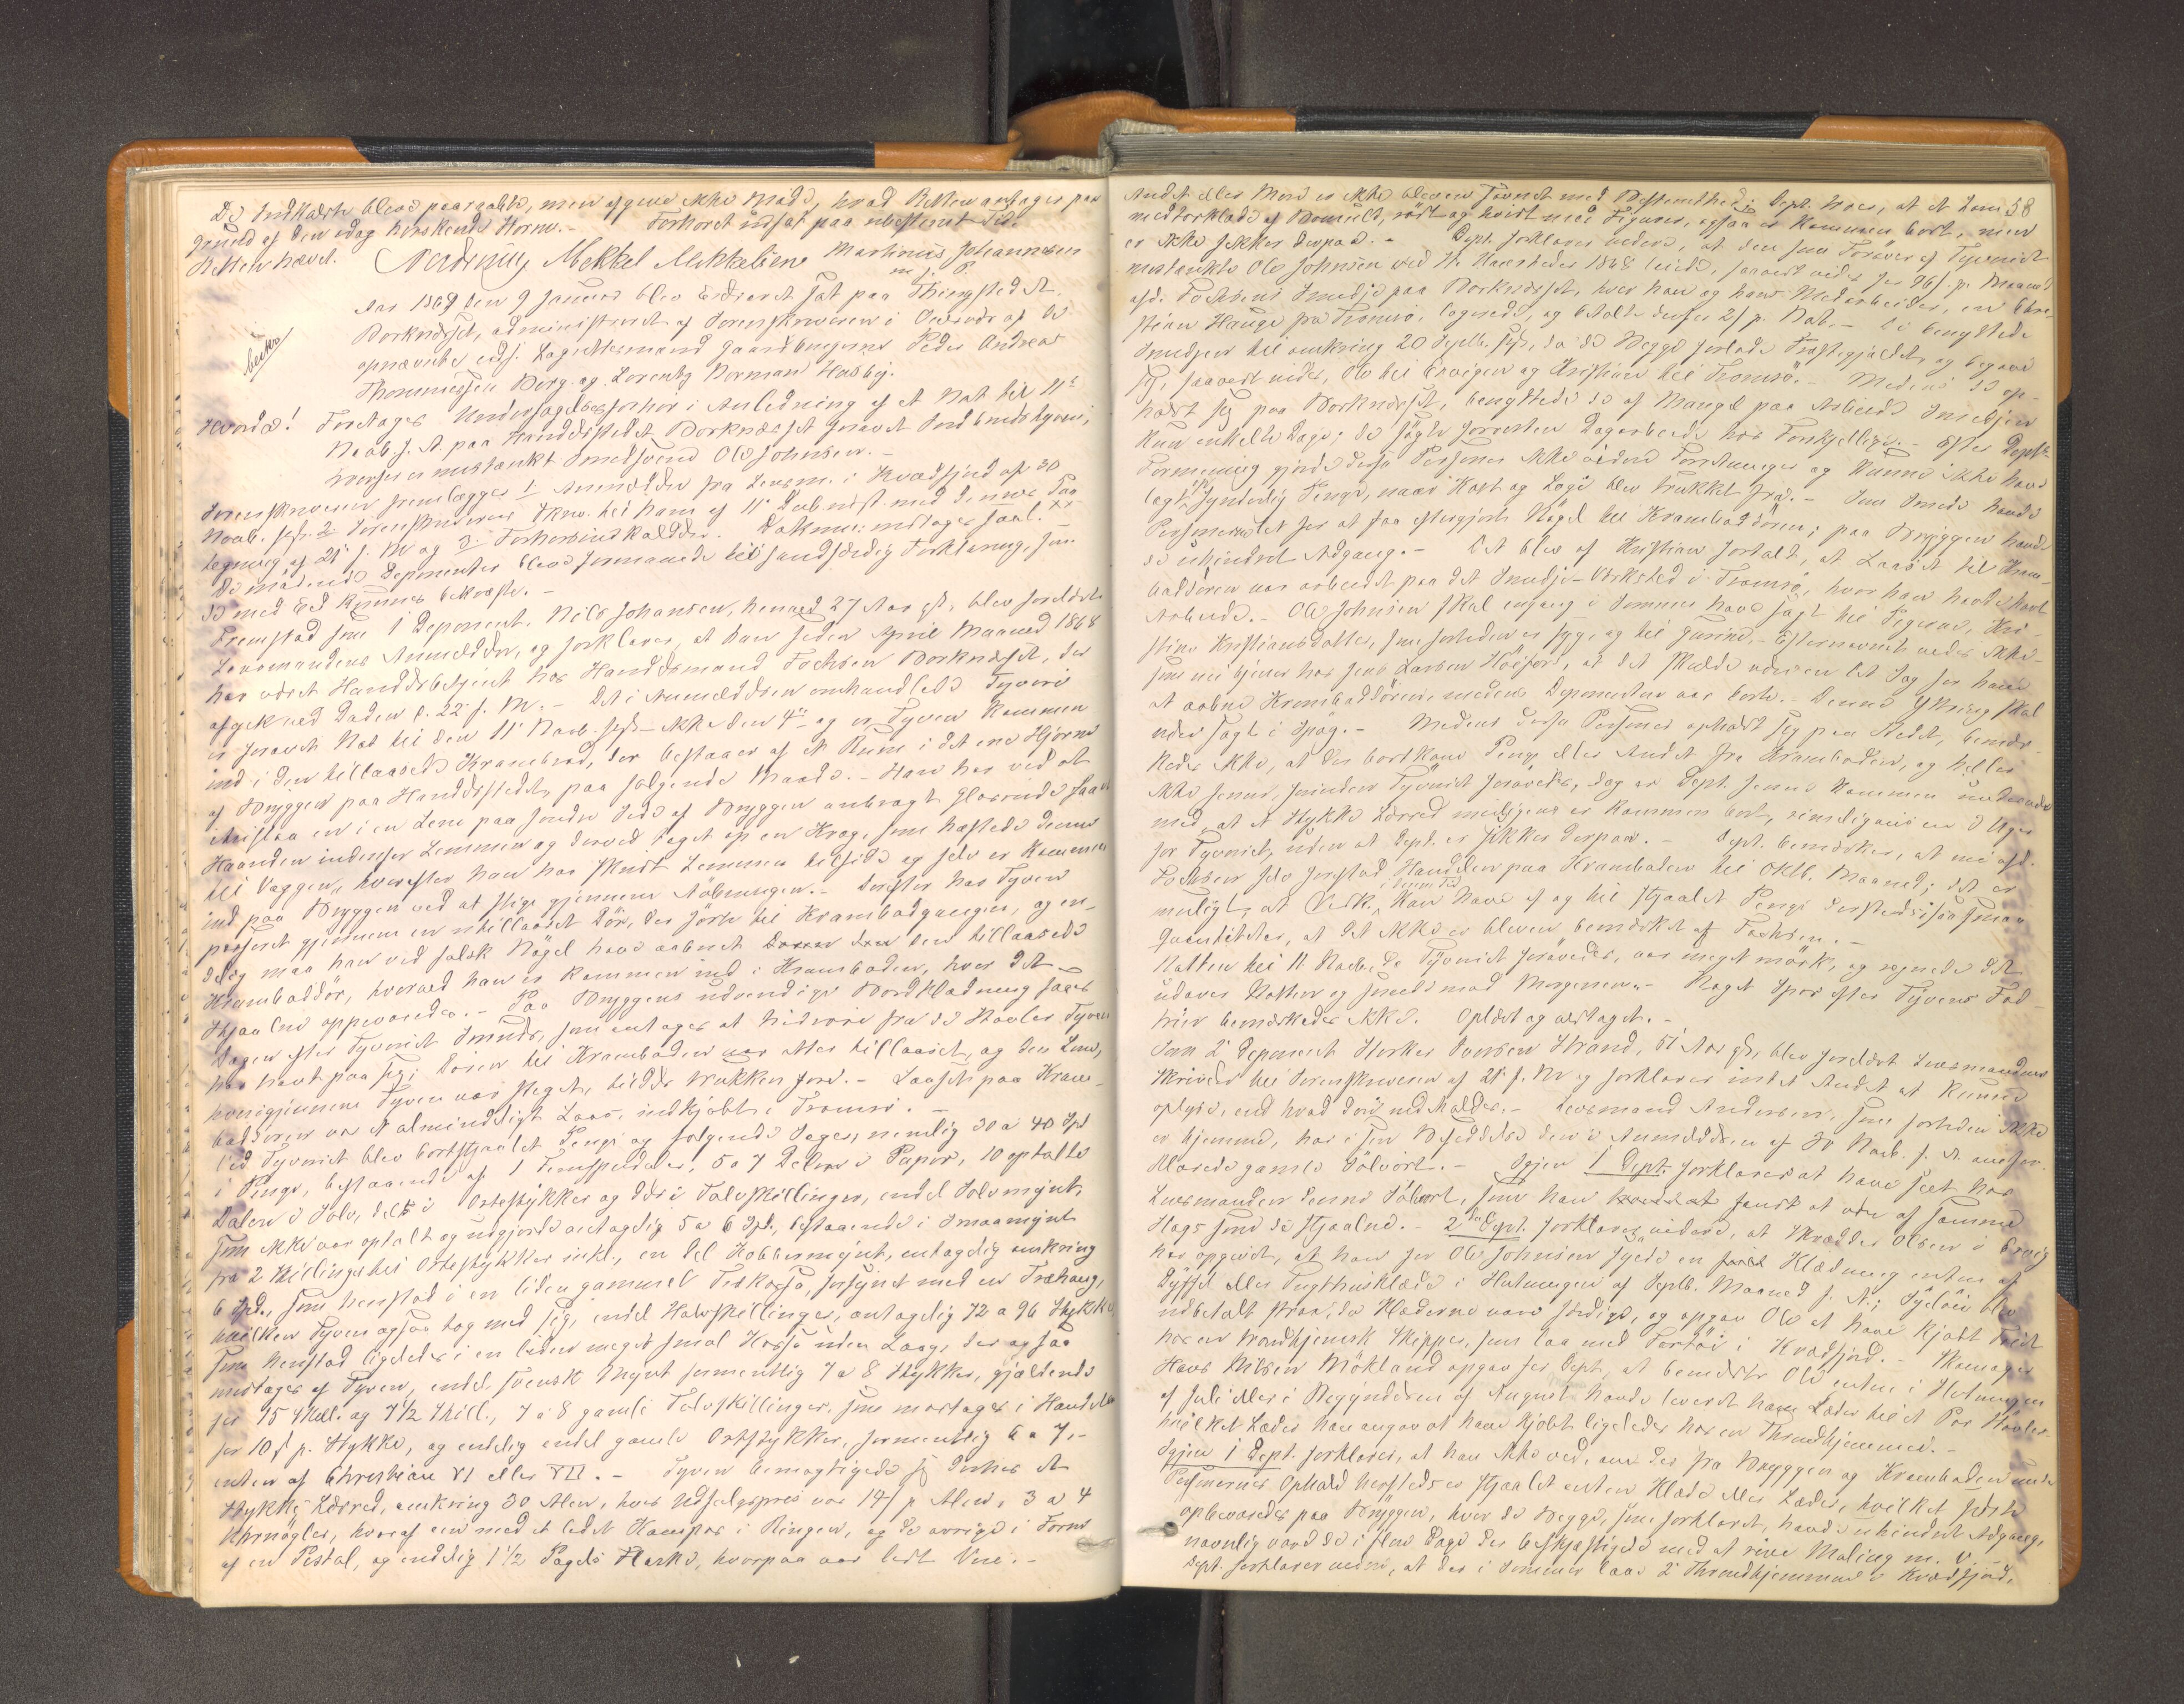 De Indkaldte bleve paaraabte, men afgave ikke Møde, hvad Retten antager paa
Grund af den idag herskende Storm. - Forhøret udsat paa ubestemt Tid.
Retten hævet. Mekkel Mikkelsen Martinus Johannesen
m. f. P.
Aar 1869 den 9 Januar blev Extraret sat paa Thingstedet
Borknæsset, administreret af Sorenskriveren i Overvær af de
opnævnte edsv. Lagrettesmænd Gaardbrugerne Peder Andreas
Thommessen Berg og Lorentz Norman Husby.
Hvorda! Foretages Undersøgelsesforhør i Anledning af et Nat til 11te
Novb. f. A. paa Handelsstedet Borknæsset forøvet Indbrudstyveri,
hvorfor er mistænkt Smedsvend Ole Johnsen. -
Sorenskriveren fremlægger 1. Anmeldelse fra Lensm. i Kvædfjord af 30
Novb. sidstl. 2. Sorenskriverens Skriv. til ham af 11 Decb. næst. med dennes Paa-
tegning af 21 s. M. og 3. Forhørsindkaldelse. Dokum. indtages saal. -
De mødende Deponenter bleve formanede til sandfærdig Forklaring, som
de med Ed kunne bekræfte. -
Fremstod som 1 Deponent, Nils Johansen, henved 27 Aar gl., blev forelæst
Lensmandens Anmeldelse, og forklarer, at han siden April Maaned 1868
har været Handelsbetjent hos Handelsmand Fochsen Borknæsset, der
afgik ved Døden d. 22 f. M. - Det i Anmeldelsen omhandlede Tyveri
er forøvet Nat til den 11 Novb. sidstl. - ikke den 4de og er Tyven kommen
ind i den tillaasede Krambod, der bestaaer af et Rum i det ene Hjørne
af Bryggen paa Handelsstedet, paa følgende Maade. - Han har ved at
itusslaa en i en Lem paa søndre Side af Bryggen anbragt Glasrude faaet
Haanden indenfor Lemmen og derved taget op en Krog, som hæftede denne
til Væggen, hvorefter han har skudt Lemmen tilside og selv er kommen
ind paa Bryggen ved at stige gjennem Aabningen. - Derefter har Tyven
passeret gjennem en utillaaset Dør, der fører til Krambodgangen, og en-
delig maa han ved falsk Nøgel have aabnet den tillaasede
Kramboddør, hvorved han er kommen ind i Kramboden, hvor det
Stjaalne opbevaredes. - Paa Bryggens udvendige Bordklædning saaes
Dagen efter Tyveriet Smuds, som antages at hidrøre fra de Støvler Tyven
har havt paa sig; Døren til Kramboden var atter tillaaset, og den Lem,
hvorigjennem Tyven var steget, ligeledes trukken fore. - Laaset paa Kram-
boddøren var et almindeligt Laas, indkjøbt i Tromsø. -
Ved Tyveriet blev bortstjaalet Penge og følgende Sager, nemlig 30 a 40 Spd
i Penge, bestaaende af 1 Femspeciedaler, 5 a 7 Dalere i Papir, 10 optalte
Dalere i Sølv, dels i Ortstykker og dels i Tolvskillinger, endel Sølvmynt,
som ikke var optalt og udgjorde antagelig 5 a 6 Spd., bestaaende i Smaamynt
fra 2 Skillinger til Ortstykker inkl., en Del Kobbermynt, antagelig omkring
6 Spd., som henstod i en liden gammel Teskasse, forsynet med en Træhang,
hvilken Tyven ogsaa tog med sig, endel Halvskillinger, antagelig 72 a 96 Stykker,
som henstod ligeledes i en liden meget smal Kasse uden Laag, der ogsaa
medtages af Tyven, endel svensk Mynt formentlig 7 a 8 Stykker, gjældende
for 15 Skill. og 7 1/2 Skill., 7 a 8 gamle Tolvskillinger, som modtages i Handelen
for 10 s p. Stykke, og endelig endel gamle Ortstykker, formentlig 6 a 7,
enten af Christian VI eller VII. - Tyven bemægtigede sig derhos et
Stykke Lærred, omkring 30 Alen, hvis Udsalgspris var 14 s p. Alen, 3 a 4
Uhrnøgler, hvoraf een med et lidet Kompas i Ringen, og de øvrige i Form
af en Pistol, og endelig 1 1/2 Pægels Flaske, hvorpaa var lidt Viin. -
58
Andet eller Mere er ikke bleven savnet med Bestemthed; Dept. troer, at et Lom-
metørklæde af Bomuld, rødt og hvidt med Figurer, ogsaa er kommen bort, men
er ikke sikker derpaa. - Dept. forklarer videre, at den som Forøver af Tyveriet
mistænkte Ole Johnsen ved St. Hanstider 1868 leiede, saavidt vides for 96 s. pr. Maaned
afd. Fochsens Smedje paa Borknæsset, hvor han og hans Medarbeider, en Chri-
stian Hauge fra Tromsø, logerede, og betalte derfor 2 s p. Nat. - De benyttede
Smedjen til omkring 20 Septb. sidstl., da de Begge forlode Præstegjældet og begave
sig, saavidt vides, Ole til Ervigen og Kristian til Tromsø. - Medens de op-
holdt sig paa Borknæsset, benyttede de af Mangel paa Arbeide Smedjen
kun enkelte Dage; de søgte forresten Dagarbeide hos Forskjellige. - Efter Depts
Formening gjorde disse Personer ikke videre Fortjeneste og kunne ikke have
lagt op synderlig Penge, naar Kost og Logi blev trukket fra. - Som Smede havde
Personerne let for at faa eftergjort Nøgel til Kramboddøren; paa Bryggen havde
de uhindret Adgang. - Det blev af Kristian fortalt, at Laaset til Kram-
boddøren var arbeidet paa det Smedje-Værksted i Tromsø, hvor han havde havt
Arbeide. - Ole Johnsen skal engang i Sommer have sagt til Pigerne, Kri-
stine Kristiansdatter, som fortiden er syg, og til Gurine, - Efternavnet vides ikke -
som nu tjener hos Jens Larsen Høifors, at det skulde være en let Sag for ham
at aabne Kramboddøren, medens Deponenten var borte. Denne Ytring skal
være sagt i Spøg. - Medens disse Personer opholdt sig paa Stedet, bemær-
kedes ikke, at der bortkom Penge eller Andet fra Kramboden, og heller
ikke senere, førinden Tyveriet forøvedes, dog er Dept. senere kommen underveir
med, at et Stykke Lærred muligens er kommen bort, rimeligviis en 3 Uger
før Tyveriet, uden at Dept. er sikker derpaa. - Dept. bemærker, at nu afd.
Fochsen selv forestod Handelen paa Kramboden til Oktb. Maaned; det er
muligt, at Vedk. i denne Tid kan have af og til stjaalet Penge dersteds i saa smaa
Quantiteter, at det ikke er bleven bemærket af Fochsen. -
Natten til 11 Novb., da Tyveriet forøvedes, var meget mørk, og regnede det
udover Natten og sneede mod Morgenen. - Noget Spor efter Tyvens Fod-
trin bemærkedes ikke. Oplæst og vedtaget. -
Som 2 Deponent Storker Iversen Strand, 51 Aar gl., blev forelæst Lensmandens
Skrivelse til Sorenskriveren af 21 f. M. og forklarer intet Andet at kunne
oplyse, end hvad deri ommeldes. - Lensmand Andersen, som fortiden ikke
er hjemme, har i sin Besiddelse den i Anmeldelsen af 30 Novb. f. A. anfør-
te gamle Sølvort. - Igjen 1 Dept. forklarer at have seet hos
Lensmanden denne Sølvort, som han fandt at være af samme
Slags som de stjaalne. - 2den Dept. forklarer videre, at Skrædder Olsen i Ervig
har opgivet, at han for Ole Johnsen syede en Klædning enten af
Dyffel eller Tugthusklæde i Slutningen af Septb. Maaned f. A.; Syeløn blev
udbetalt strax, da Klæderne vare færdige, og opgav Ole at have kjøbt Tøiet
hos en trondhjemsk Skipper, som laa med Fartøi i Kvædfjord. - Skomager
Hans Nilsen Mökland opgav for Dept. at bemeldte Ole enten i Slutningen
af Juli eller i Begyndelsen af August havde leveret ham Læder til et Par Støvler,
hvilket Læder han angav at have kjøbt ligeledes hos en Throndhjemmer. -
Igjen 1 Dept. forklarer, at han ikke ved, om der fra Bryggen og Kramboden under
Personernes Ophold hersteds er stjaalet enten Klæde eller Læder, hvilket sidste
opbevaredes paa Bryggen, hvor de Begge, som forklaret, havde uhindret Adgang,
navnlig vare de i flere Dage der beskjæftigede med at rive Maling m. v. -
Dept. forklarer videre, at der i Sommer laae 2 Throndhjemmere i Kvædfjord,